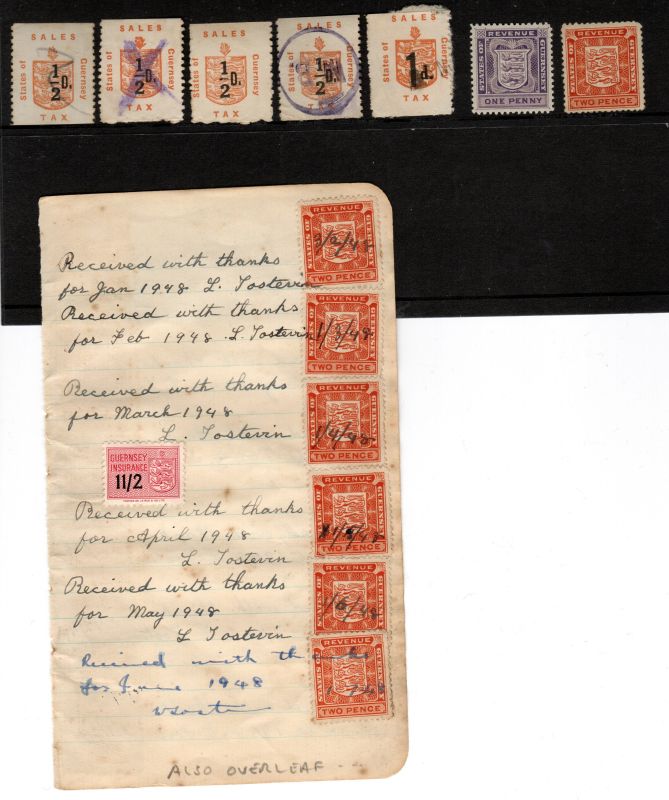 SALES
States of
½D.
Guernsey
TAX
SALES
States of
½D.
Guernsey
TAX
SALES
States of
½D.
Guernsey
TAX
SALES
States of
½D.
Guernsey
TAX
SALES
States of
1d.
Guernsey
TAX
REVENUE
STATES OF
GUERNSEY
ONE PENNY
REVENUE
STATES OF
GUERNSEY
TWO PENCE
REVENUE
STATES OF
GUERNSEY
3/2/48
TWO PENCE
Received with thanks
for Jan 1948 L. Tostevin
Received with thanks
for Feb 1948 L. Tostevin
REVENUE
STATES OF
GUERNSEY
1/3/48
TWO PENCE
Received with thanks
for March 1948
L. Tostevin
REVENUE
STATES OF
GUERNSEY
1/4/48
TWO PENCE
GUERNSEY
INSURANCE
11/2
Received with thanks
for April 1948
L. Tostevin
REVENUE
STATES OF
GUERNSEY
TWO PENCE
Received with thanks
for May 1948
L Tostevin
REVENUE
STATES OF
GUERNSEY
1/6/48
TWO PENCE
Received with thanks
for June 1948
REVENUE
STATES OF
GUERNSEY
TWO PENCE
ALSO OVERLEAF